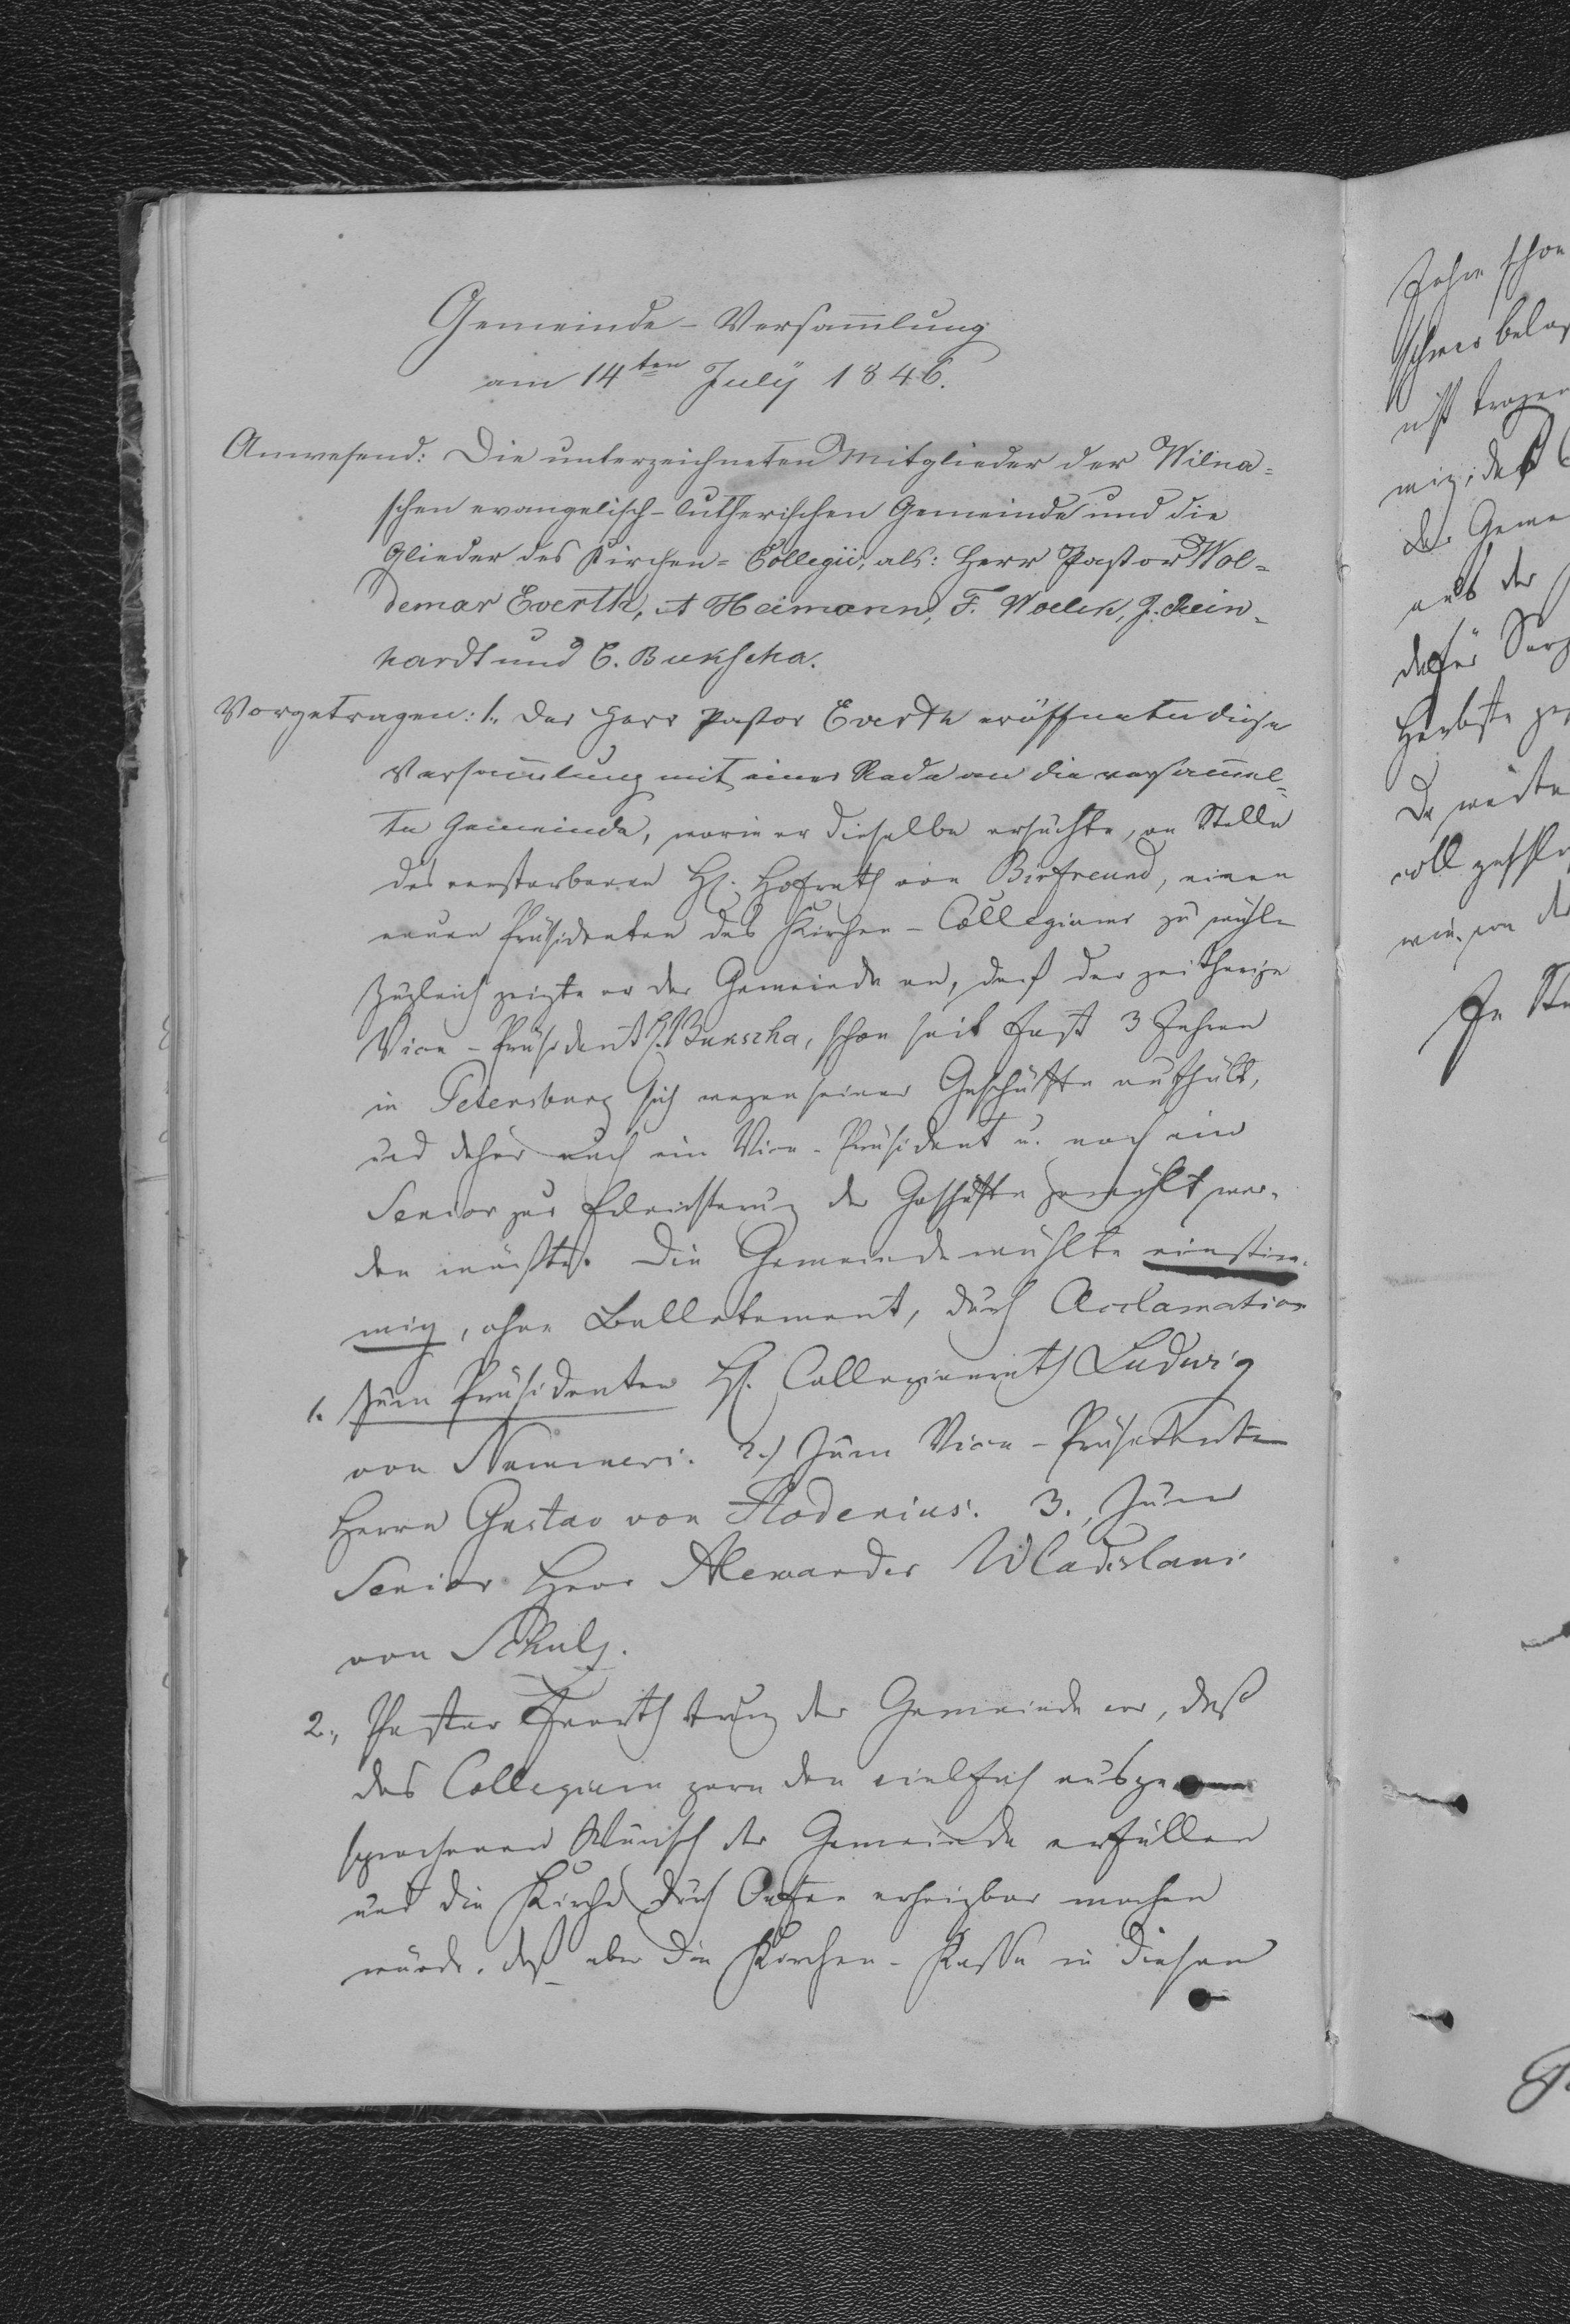 Gemeinde-Versam̄lung
am 14ten Julÿ 1846.
Anwesend: Die unterzeichneten Mitglieder der Wilna=
schen evangelisch-lutherischen Gemeinde und die
Glieder des Kirchen=Collegii, als: Herr Pastor Wol=
demar Everth, A Heimann, F. Woelck, J. Rein-
hardt und C. Bukscha.
Vorgetragen: 1., Der Herr Pastor Everth eröffnete diese
Versam̄lung mit einer Rede an die versam̄el-
te Gemeinde, worin er dieselbe ersuchte, an Stelle
des verstorbenen H. Hofrath von Birfreund, einen
neuen Präsidenten des Kirchen-Collegiums zu wählen
Zugleich zeigte er der Gemeinde an, daß der zeitherige
Vice-Präsident H. Bukscha, schon seit fast 3 Jahren
in Petersburg sich wegen seiner Geschäfte aufhält,
und daher auch ein Vice-Präsident u. noch ein
Senior zur Erleichterung der Geschäfte gewählt wer-
den müßte. Die Gemeinde wählte einstim-
mig, ohne Ballotement, durch Acclamation
1. zum Präsidenten H. Collegienrath Ludwig
von 2.) Zum Vice-Präsidenten
Herrn Gustav von Flodenius. 3., Zum
Senior Herr Alexander Wladislaus
von Schulz.
2., Pastor Everth trug der Gemeinde vor, daß
das Collegium gern den vielfach ausge-
sprochenen Wunsch der Gemeinde erfüllen
und die Kirche durch Oefen erheizbar machen
würde, daß aber die Kirchen-Kasse in diesem
Jahre schon
schwer belas
nicht tragen
mig, daß
der Geme
aus der
dafür Sorg
Herbste
De
voll
wie von de